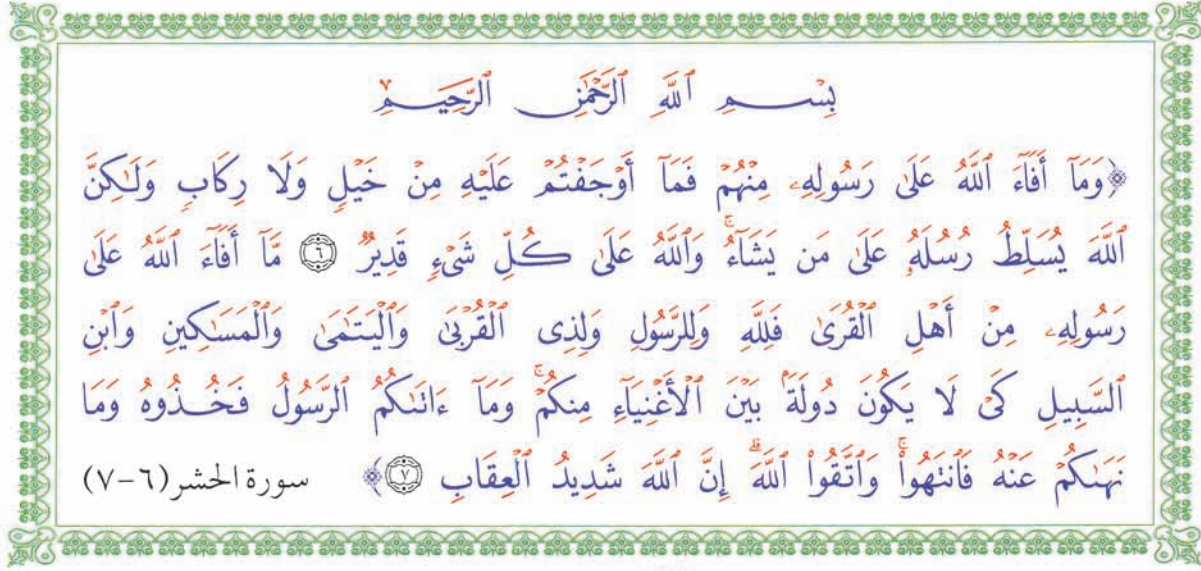 بِسْمِ ٱللَّهِ ٱلرَّحْمَٰنِ ٱلرَّحِيمِ
﴿وَمَآ أَفَآءَ ٱللَّهُ عَلَىٰ رَسُولِهِۦ مِنْهُمْ فَمَآ أَوْجَفْتُمْ عَلَيْهِ مِنْ خَيْلٍ وَلَا رِكَابٍ وَلَٰكِنَّ
ٱللَّهَ يُسَلِّطُ رُسُلَهُۥ عَلَىٰ مَن يَشَآءُ ۚ وَٱللَّهُ عَلَىٰ كُلِّ شَىْءٍ قَدِيرٌ ٦ مَّآ أَفَآءَ ٱللَّهُ عَلَىٰ
رَسُولِهِۦ مِنْ أَهْلِ ٱلْقُرَىٰ فَلِلَّهِ وَلِلرَّسُولِ وَلِذِى ٱلْقُرْبَىٰ وَٱلْيَتَٰمَىٰ وَٱلْمَسَٰكِينِ وَٱبْنِ
ٱلسَّبِيلِ كَىْ لَا يَكُونَ دُولَةًۢ بَيْنَ ٱلْأَغْنِيَآءِ مِنكُمْ ۚ وَمَآ ءَاتَىٰكُمُ ٱلرَّسُولُ فَخُذُوهُ وَمَا
نَهَىٰكُمْ عَنْهُ فَٱنتَهُوا۟ ۚ وَٱتَّقُوا۟ ٱللَّهَ ۖ إِنَّ ٱللَّهَ شَدِيدُ ٱلْعِقَابِ ٧﴾ سورة الحشر (٦-٧)